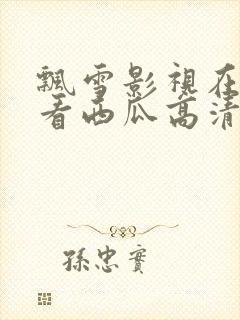 飄雪影視在
看西瓜高清
孫忠實